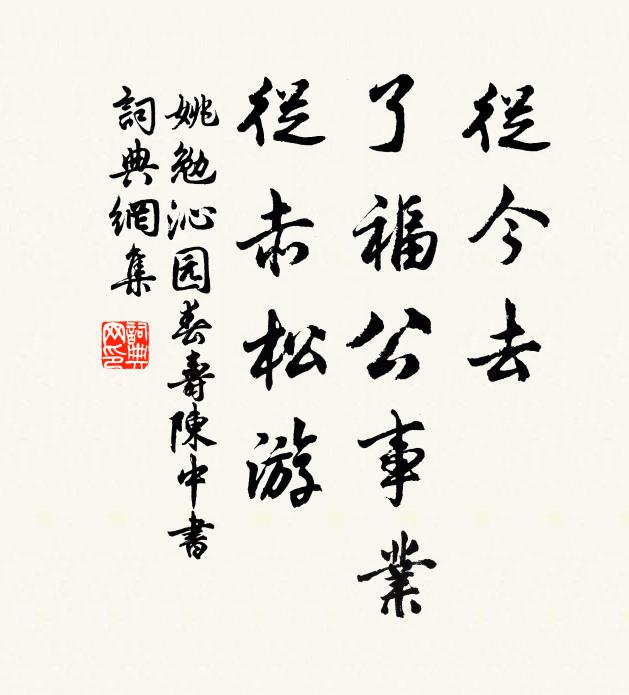 從今去
了福公事業
從赤松游
姚勉沁园春壽陳中書
詞典網集
詞典網印